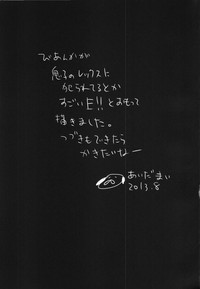 びあんかが
息子のレックスに
犯られてるとか
すごいE!! とおもって
描きました。
つづきもできたら
かきたいなー
あいだまい
2013.8